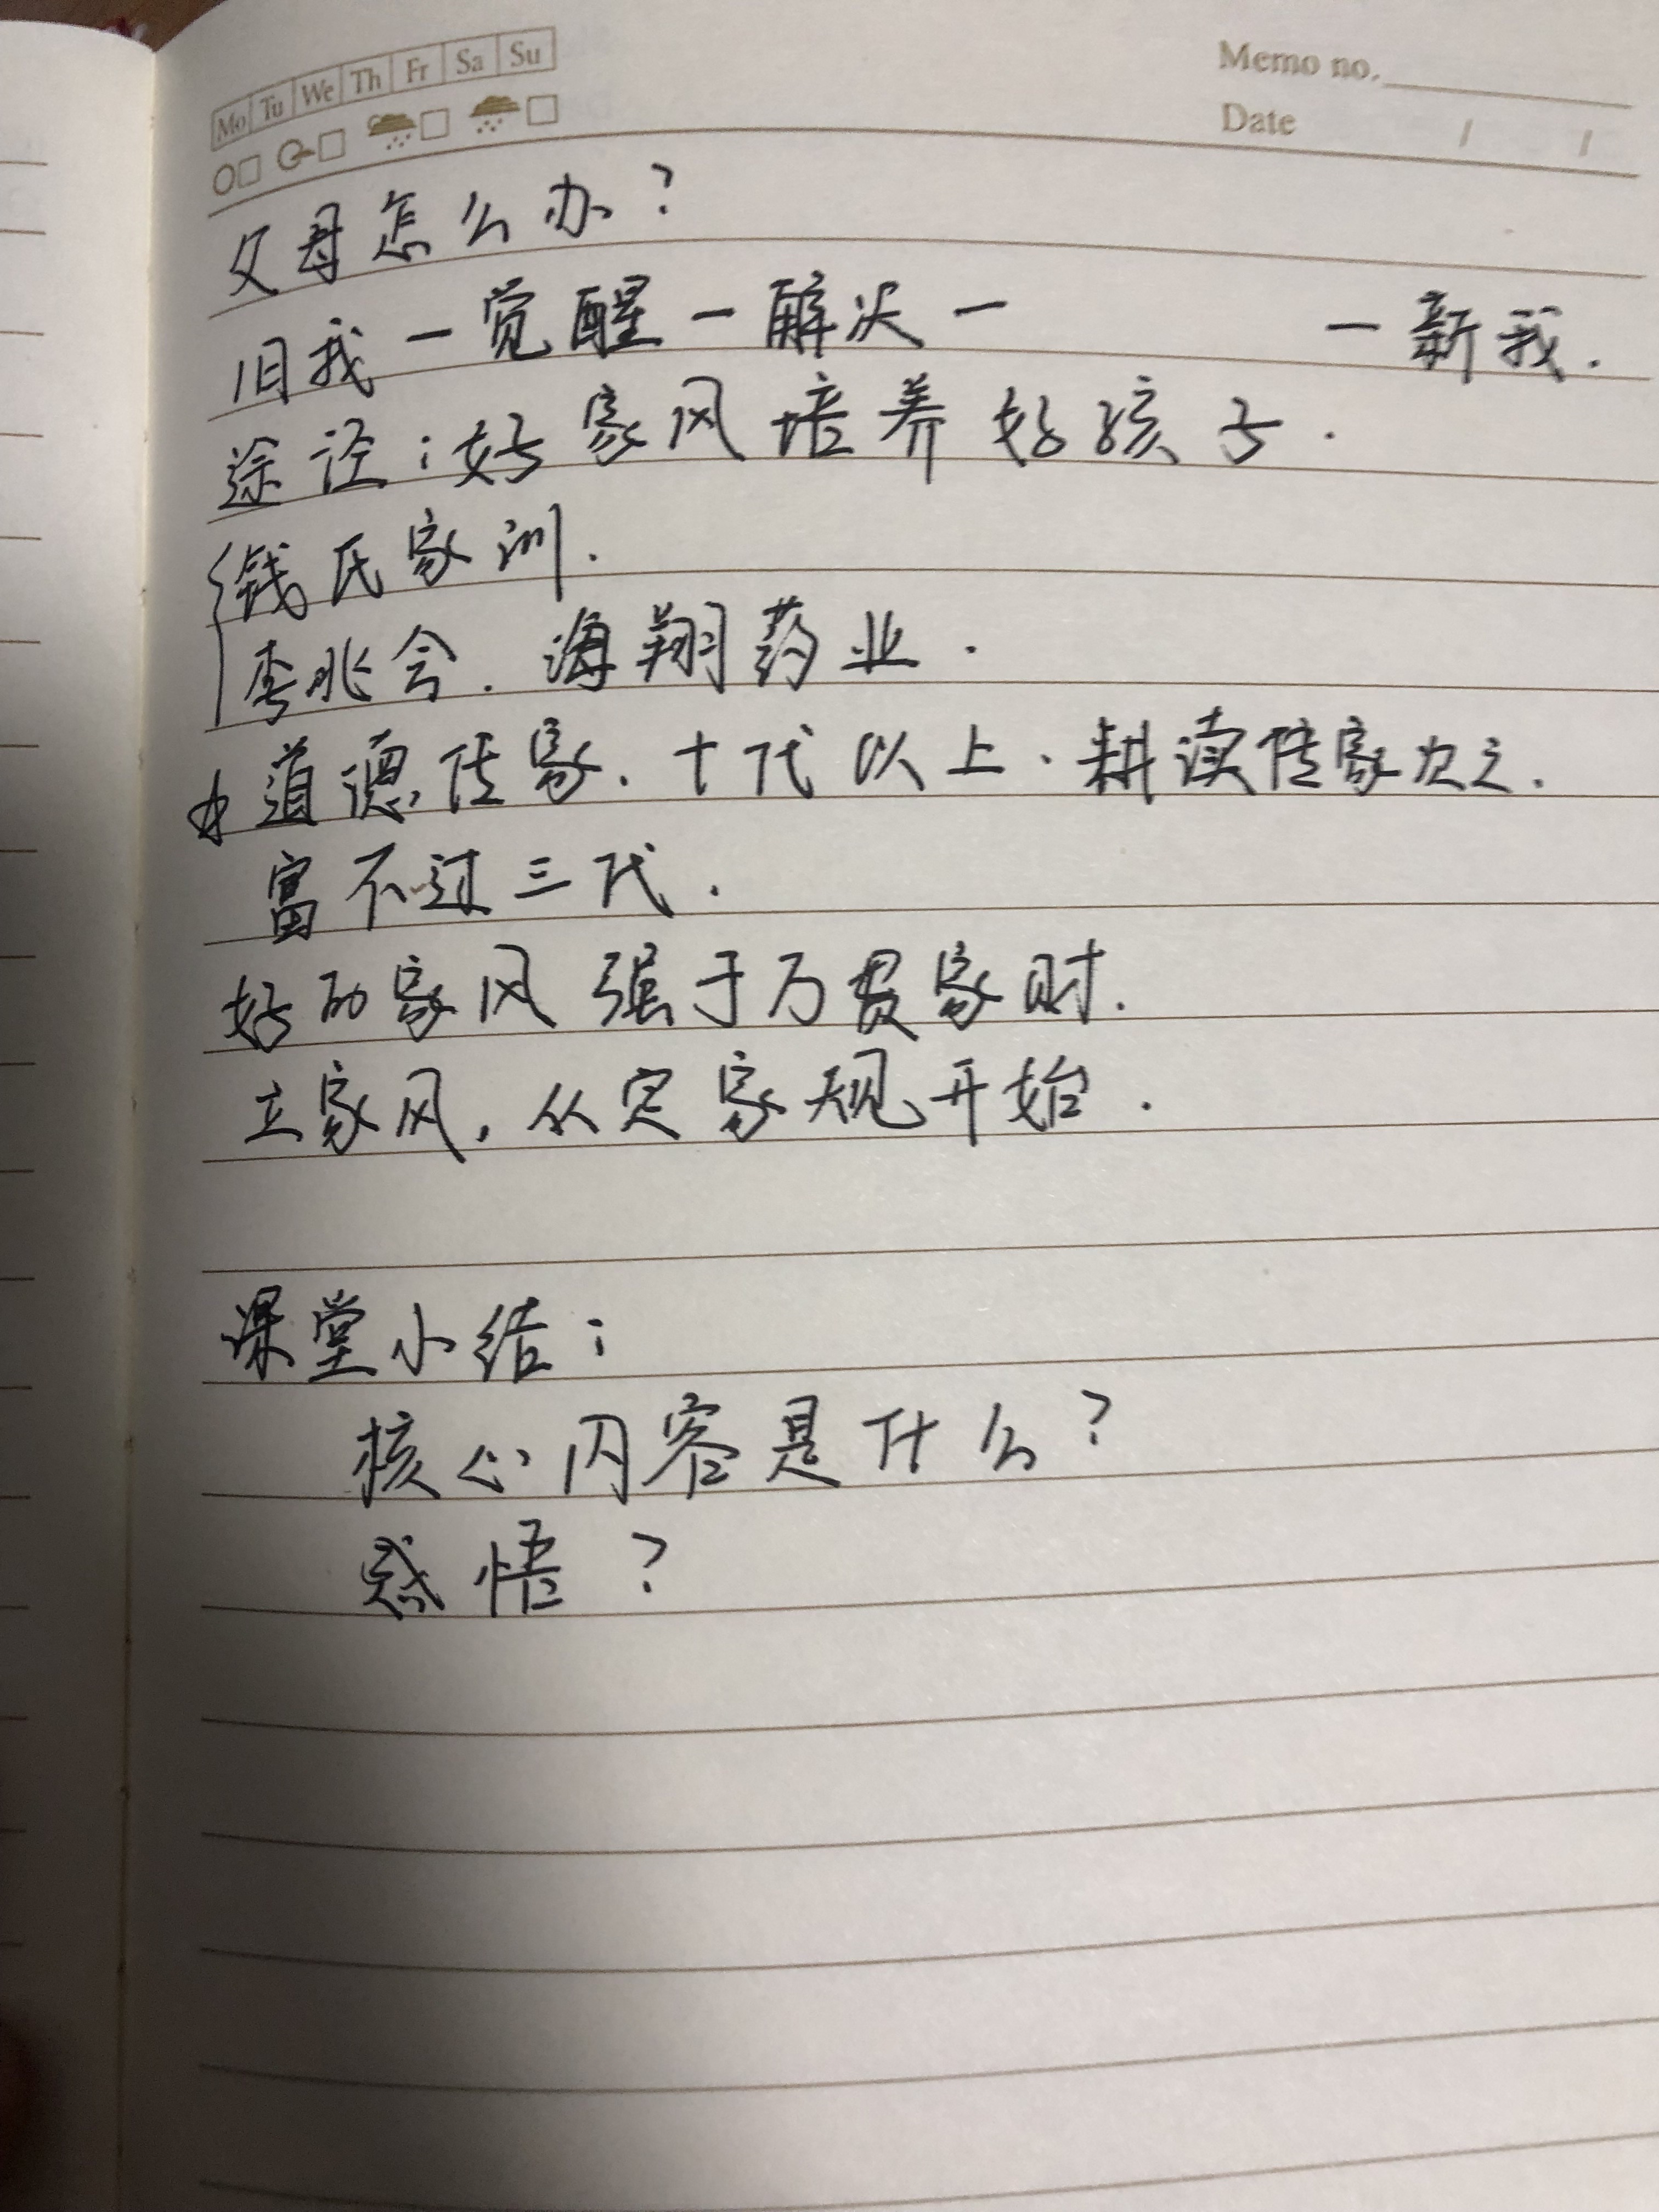 Mo Tu We Th Fr Sa Su
Memo no.
Date / /
父母怎么办?
旧我—觉醒—解决— —新我.
途径:好家风培养好孩子.
钱氏家训.
李兆会.海翔药业.
道德传家.十代以上.耕读传家次之.
富不过三代.
好的家风强于万贯家财.
立家风,从定家规开始.
课堂小结:
核心内容是什么?
感悟?